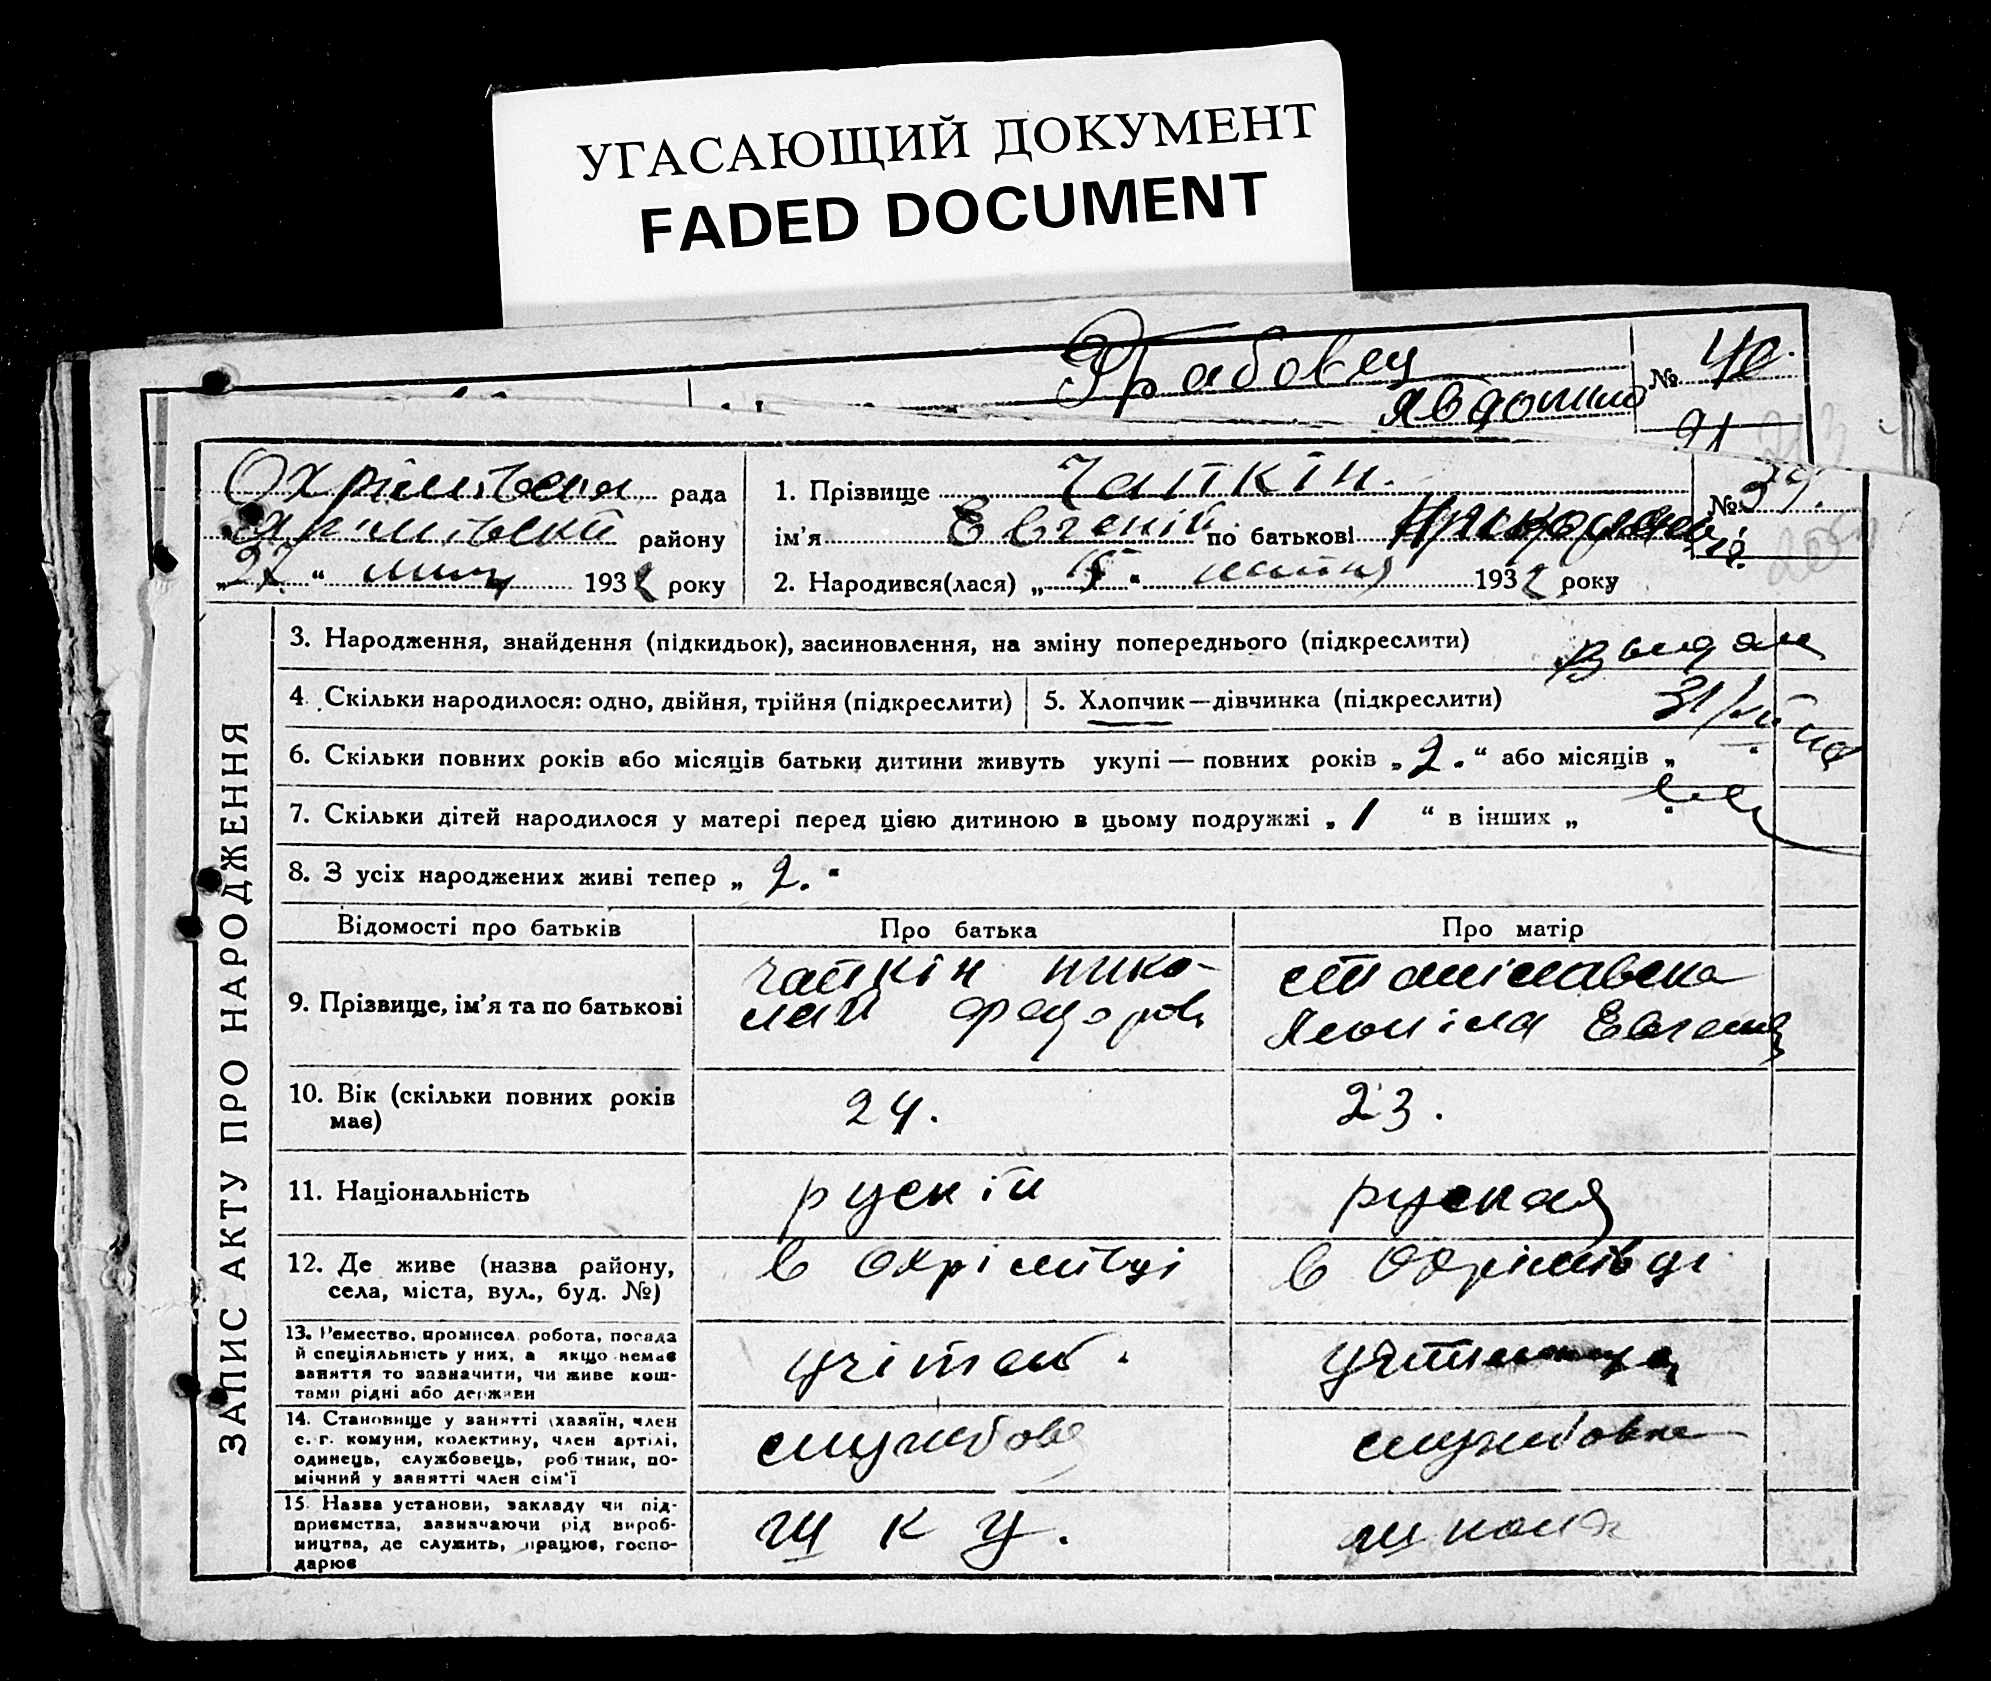 УГАСАЮЩИЙ ДОКУМЕНТ
FADED DOCUMENT
Грабовец
№ 40.
Явдокимо
91
203
рада
району
„27“ 1932 року
1. Прізвище Чапкін.
№ 39.
ім'я Евгеній по батькові
2. Народився(лася) „ “ 1932 року
ЗАПИС АКТУ ПРО НАРОДЖЕННЯ
3. Народження, знайдення (підкидьок), засиновлення, на зміну попереднього (підкреслити)
4. Скільки народилося: одно, двійня, трійня (підкреслити)
5. Хлопчик—дівчинка (підкреслити)
6. Скільки повних років або місяців батьки дитини живуть укупі — повних років „2.“ або місяців „ “
7. Скільки дітей народилося у матері перед цією дитиною в цьому подружжі „1 “ в інших „ “
8. З усіх народжених живі тепер „2.“
Відомості про батьків
Про батька
Про матір
9. Прізвище, ім'я та по батькові
чапкін нико-
лай федоров
Станіславська
Леоніла Евгенів
10. Вік (скільки повних років
має)
24.
23.
11. Національність
рускій
руская
12. Де живе (назва району,
села, міста, вул., буд. №)
в Охрімівці
в Охрімівці
13. Ремество, промисел, робота, посада
й спеціяльність у них, а якщо немає
заняття то зазначити, чи живе кош-
тами рідні або держави
учітель.
14. Становище у занятті (хазяїн, член
с.-г. комуни, колективу, член артілі,
одинець, службовець, робітник, по-
мічний у занятті член сім'ї
службове
службовка
15. Назва установи, закладу чи під-
приємства, зазначаючи рід вироб-
ництва, де служить, працює, госпо-
дарює
Ш К У.
школа